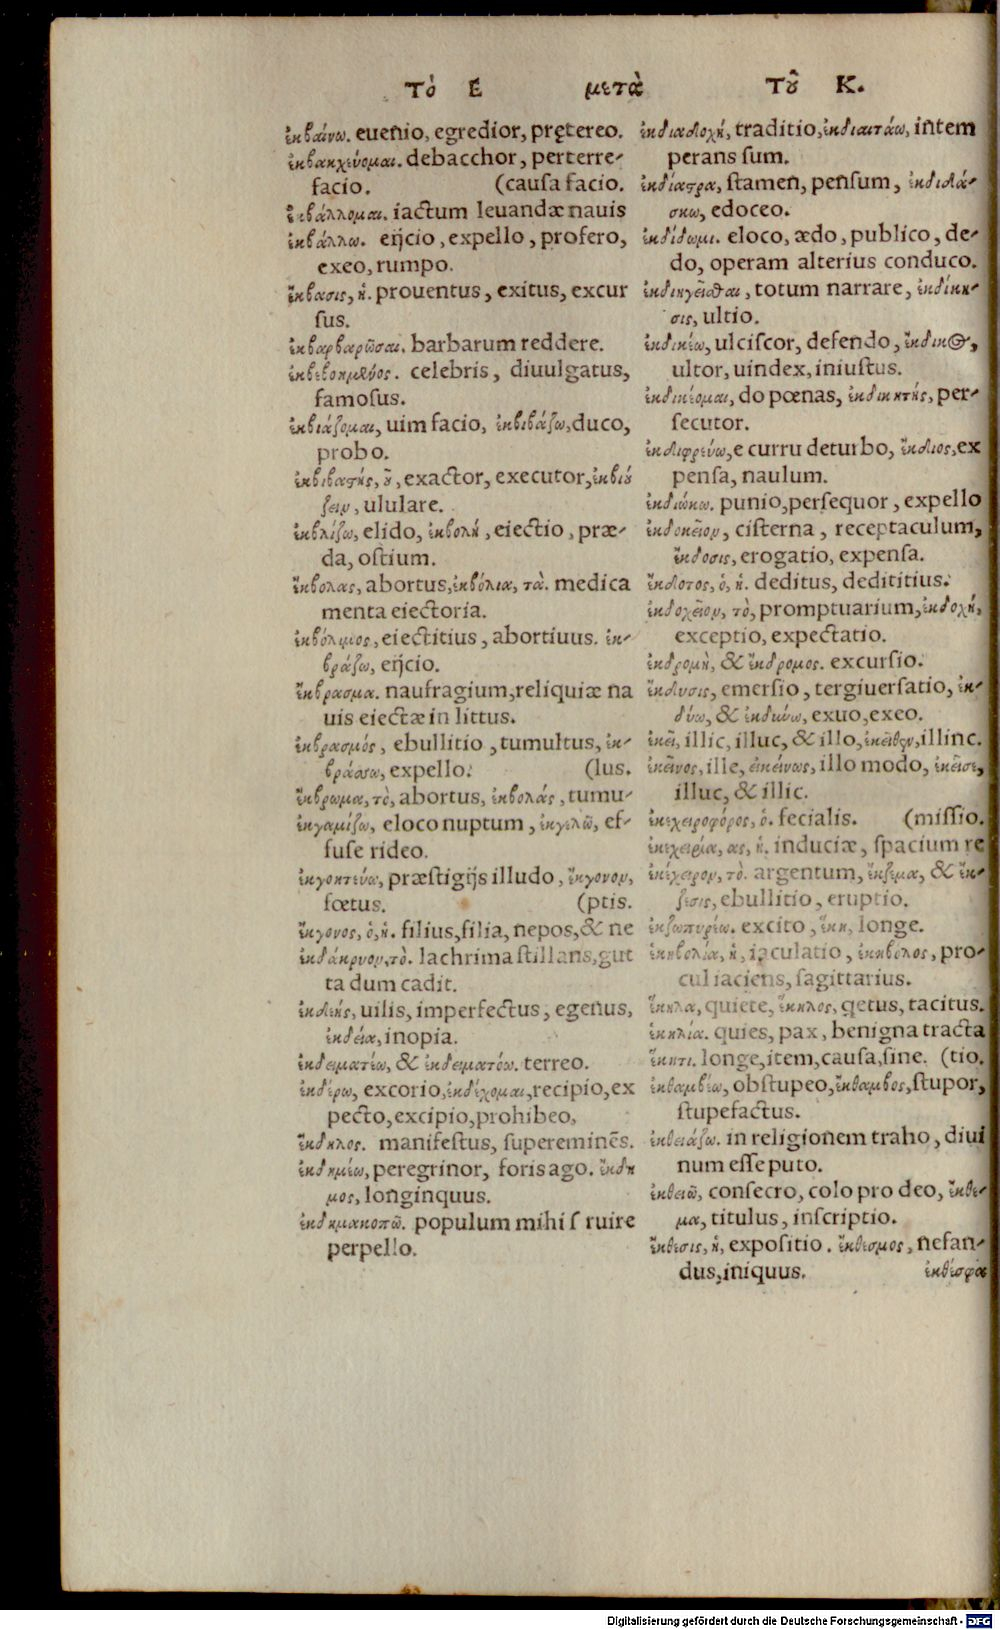 Τὸ Ε μετὰ Τοῦ Κ.
ἐκβαίνω. euenio, egredior, prętereo.
ἐκβακχεύομαι. debacchor, perterre-
facio. (causa facio.
ἐκβάλλομαι. iactum leuandæ nauis
ἐκβάλλω. eijcio, expello, profero,
exeo, rumpo.
ἔκβασις, ἡ. prouentus, exitus, excur
sus.
ἐκβαρβαρῶσαι. barbarum reddere.
ἐκβεβοημένος. celebris, diuulgatus,
famosus.
ἐκβιάζομαι, uim facio, ἐκβιβάζω, duco,
probo.
ἐκβιβαστής, οῦ, exactor, executor, ἐκβιύ
ζειν, ululare.
ἐκβλίζω, elido, ἐκβολή, eiectio, præ-
da, ostium.
ἔκβολας, abortus, ἐκβόλια, τὰ. medica
menta eiectoria.
ἐκβόλιμος, eiectitius, abortiuus. ἐκ-
βράζω, eijcio.
ἔκβρασμα. naufragium, reliquiæ na
uis eiectæ in littus.
ἐκβρασμός, ebullitio, tumultus, ἐκ-
βράσσω, expello. (lus.
ἔκβρωμα, τὸ, abortus, ἐκβολάς, tumu-
ἐκγαμίζω, eloco nuptum, ἐκγελῶ, ef-
fuse rideo.
ἐκγοητεύω, præstigijs illudo, ἔκγονον,
fœtus. (ptis.
ἔκγονος, ὁ, ἡ. filius, filia, nepos, & ne
ἐκδάκρυον, τὸ. lachrima stillans, gut
ta dum cadit.
ἐκδεής, uilis, imperfectus, egenus,
ἐκδεία, inopia.
ἐκδειματέω, & ἐκδειματόω. terreo.
ἐκδέρω, excorio, ἐκδέχομαι, recipio, ex
pecto, excipio, prohibeo,
ἔκδηλος. manifestus, supereminẽs.
ἐκδημέω, peregrinor, foris ago. ἔκδη
μος, longinquus.
ἐκδημακοπῶ. populum mihi s ruire
perpello.
ἐκδιαδοχή, traditio, ἐκδιαιτάω, intem
perans sum.
ἐκδίαστρα, stamen, pensum, ἐκδιδά-
σκω, edoceo.
ἐκδίδωμι. eloco, ædo, publico, de-
do, operam alterius conduco.
ἐκδιηγεῖσθαι, totum narrare, ἐκδίκη-
σις, ultio.
ἐκδικέω, ulciscor, defendo, ἔκδικος,
ultor, uindex, iniustus.
ἐκδικέομαι, do pœnas, ἐκδικητής, per-
secutor.
ἐκδιφρεύω, e curru deturbo, ἔκδιος, ex
pensa, naulum.
ἐκδιώκω. punio, persequor, expello
ἐκδοκεῖον, cisterna, receptaculum,
ἔκδοσις, erogatio, expensa.
ἔκδοτος, ὁ, ἡ. deditus, dedititius.
ἐκδοχεῖον, τὸ, promptuarium, ἐκδοχή,
exceptio, expectatio.
ἐκδρομὴ, & ἔκδρομος. excursio.
ἔκδυσις, emersio, tergiuersatio, ἐκ-
δύω, & ἐκδύνω, exuo, exeo.
ἐκεῖ, illic, illuc, & illo, ἐκεῖθεν, illinc.
ἐκεῖνος, ille, ἐκείνως, illo modo, ἐκεῖσε,
illuc, & illic.
ἐκεχειροφόρος, ὁ. fecialis. (missio.
ἐκεχειρία, ας, ἡ. induciæ, spacium re
ἐκέχειρον, τὸ. argentum, ἔκζεμα, & ἔκ-
ζεσις, ebullitio, eruptio.
ἐκζωπυρέω. excito, ἕκη, longe.
ἑκηβολία, ἡ, iaculatio, ἑκηβόλος, pro-
cul iaciens, sagittarius.
ἕκηλα, quiete, ἕκηλος, quietus, tacitus.
ἑκηλία. quies, pax, benigna tracta
ἕκητι. longe, item, causa, sine. (tio.
ἐκθαμβέω, obstupeo, ἔκθαμβος, stupor,
stupefactus.
ἐκθειάζω. in religionem traho, diui
num esse puto.
ἐκθειῶ, consecro, colo pro deo, ἔκθε-
μα, titulus, inscriptio.
ἔκθεσις, ἡ, expositio. ἔκθεσμος, nefan-
dus, iniquus. ἐκθέσφα
Digitalisierung gefördert durch die Deutsche Forschungsgemeinschaft - DFG